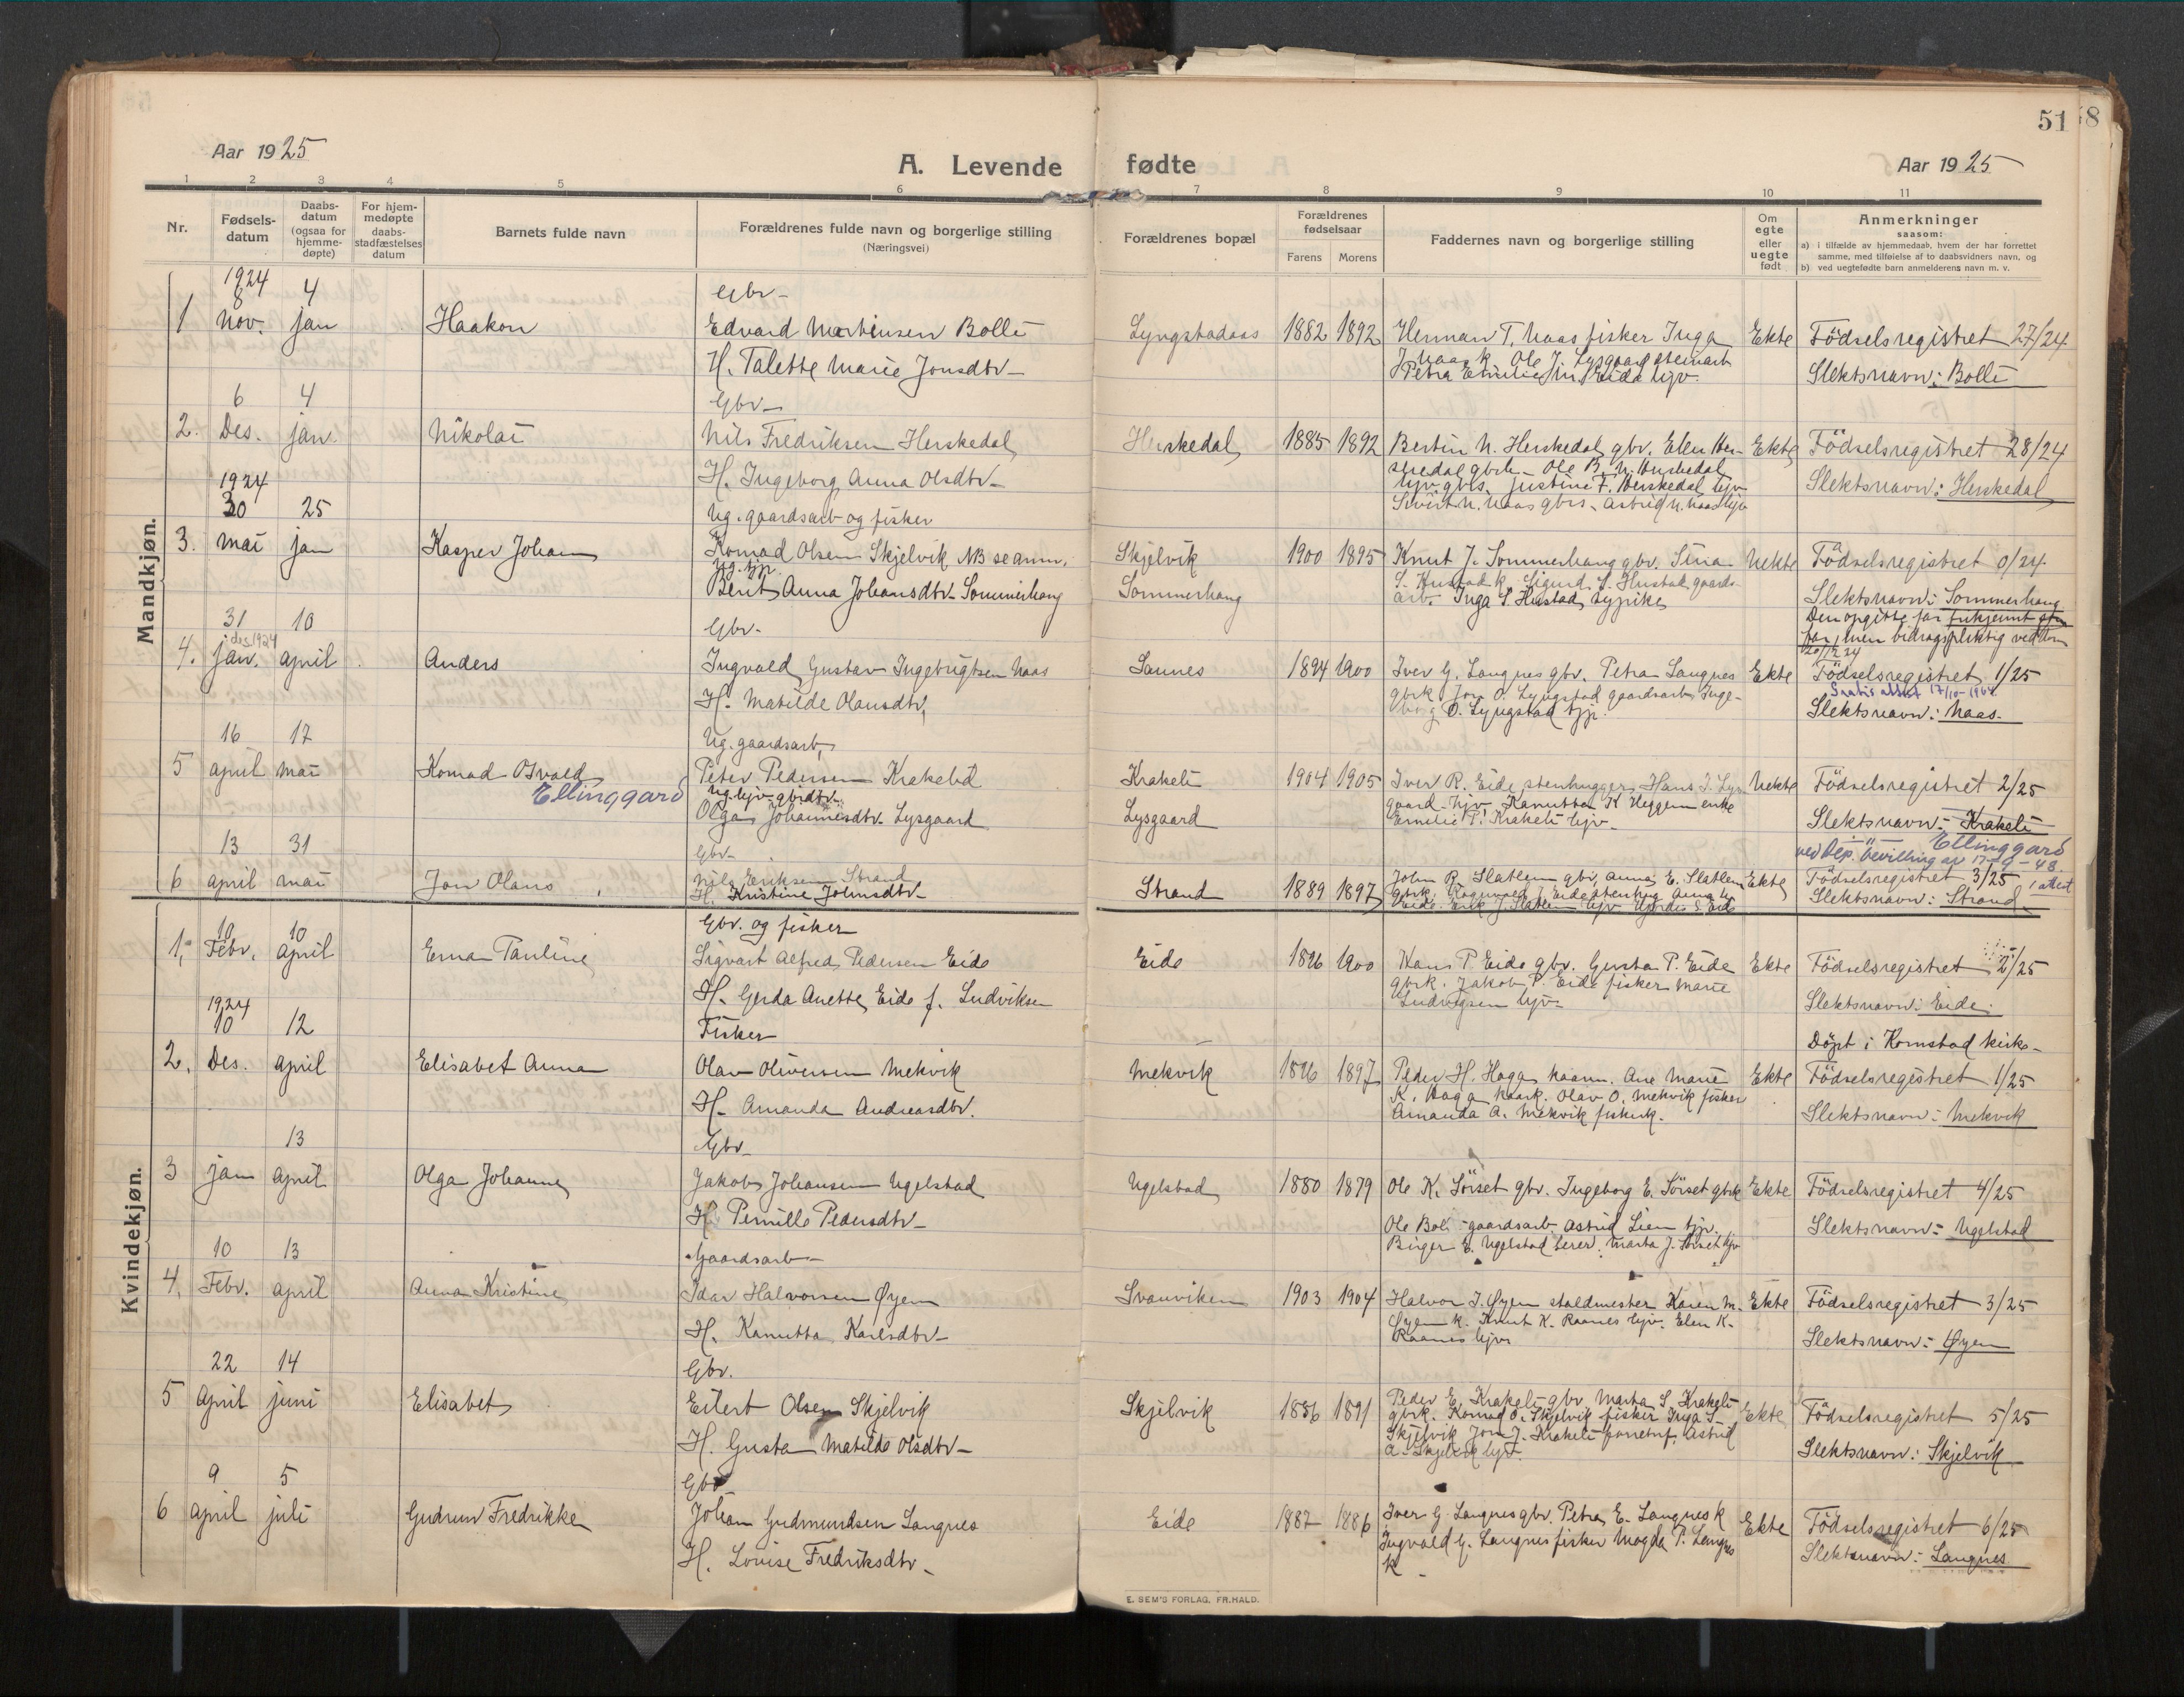 51
58
Aar 1925
A. Levende fødte
Aar 1925
1 2 3 4 5 6 7 8 9 10 11
Nr.
Fødsels-
datum
Daabs-
datum
(ogsaa for
hjemme-
døpte)
For hjem-
medøpte
daabs-
stadfæstelses
datum
Barnets fulde navn
Forældrenes fulde navn og borgerlige stilling
(Næringsvei)
Forældrenes bopæl
Forældrenes
fødselsaar
Farens Morens
Faddernes navn og borgerlige stilling
Om
egte
eller
uegte
født
Anmerkninger
saasom:
a) i tilfælde av hjemmedaab, hvem der har forrettet
samme, med tilføielse af to daabsvidners navn, og
b) ved uegtefødte barn anmelderens navn m. v.
Mandkjøn.
1924
8 4 Gbr.
1 nov. jan Haakon Edvard Martinsen Bolli Lyngstadaas 1882 1892 Herman T. Naas fisker Inga Ekte Födselsregistret 27/24
H. Talette Marie Jonsdtr. J. Naas k. Ole J. Lysgaard stenarb.
Petra Emilie Eide hjv. Slektsnavn: Bolli
6 4 Gbr.
2. Des. jan. Nikolai Nils Fredriksen Herskedal Herskedal 1885 1892 Bertin N. Herskedal gbr. Elen Her- Ekte Födselsregistret 28/24
1924 H. Ingeborg Anna Olsdtr. skedal gbrk. Ole B. N. Herskedal
hjv. gbrs. Justine F. Herskedal hjv. Slektsnavn: Herskedal
Sivert N. Naas gbrs. Astrid N. Naas hjv
30 25 Ug. gaardsarb og fisker
3. mai jan Kasper Johan Konrad Olsen Skjelvik NB se anm. Skjelvik 1900 1895 Knut J. Sommerhaug gbr. Sina Uekte Födselsregistret 0/24
ug. tjp.
Berit Anna Johansdtr. Sommerhaug Sommerhaug S. Hustad k. Sigurd S. Hustad gaards-
arb. Inga S. Hustad sypike Slektsnavn: Sommerhaug
Den opgitte far frikjennt som
far, men bidragspliktig ved dom
20/12 24
31 10 Gbr.
des 1924
4. jan. april Anders Ingvald Gustav Ingebrigtsen Naas Sannes 1894 1900 Iver G. Langnes gbr. Petra Langnes Ekte Födselsregistret 1/25
H. Matilde Olausdtr. gbrk. Jon O. Lyngstad gaardsarb. Inge-
borg O. Lyngstad tjp. Gratis attest 17/10-1964
Slektsnavn: Naas.
16 17 Ug. gaardsarb.
5 april mai Konrad Osvald Peter Pedersen Krakeli Krakeli 1904 1905 Iver R. Eide stenhugger Hans J. Lys- Uekte Födselsregistret 2/25
Ellinggard ug. hjv. gbrdtr.
Olga Johannesdtr. Lysgaard Lysgaard gaard hjv. Kanutta K. Heggem enke
Emilie P. Krakeli hjv. Slektsnavn: Krakeli
Ellinggard
ved Dep. bevilling av 17-9-48.
13 31 Gbr.
6 april mai Jon Olaus Nils Eriksen Strand Strand 1889 1897 John R. Slatlem gbr. Anna E. Slatlem Ekte Födselsregistret 3/25 1 attest
H. Kristine Johnsdtr. Slektsnavn: Strand
Kvindekjøn.
10 10 Gbr. og fisker
1. Febr. april Erna Pauline Sigvart Alfred Pedersen Eide Eide 1896 1900 Hans P. Eide gbr. Gusta P. Eide Ekte Födselsregistret 2/25
H. Gerda Anette Eide f. Ludviksen gbrk. Jakob P. Eide fisker Marie
Ludvigsen hjv. Slektsnavn: Eide.
1924
10 12 Fisker Döpt i Kornstad kirke
2. Des. april Elisabet Anna Olav Oliversen Mekvik Mekvik 1896 1897 Peder H. Haga kaarm. Ane Marie Ekte Födselsregistret 1/25
H. Amanda Andreasdtr. K. Haga kaark. Olav O. Mekvik fisker
Amanda A. Mekvik fiskerk. Slektsnavn: Mekvik
13 Gbr.
3 jan april Olga Johanne Jakob Johansen Ugelstad Ugelstad 1880 1879 Ole K. Sörset gbr. Ingeborg E. Sörset gbrk Ekte Födselsregistret 4/25
H. Pernille Pedersdtr. Ole Boli gaardsarb Astrid Lien tjp.
Birger E. Ugelstad lærer. Marta J. Sörset hjv Slektsnavn: Ugelstad
10 13 Gaardsarb.
4. Febr. april Anna Kristine Idar Halvorsen Øyen Svanviken 1903 1904 Halvor I. Øyen staldmester Karen M. Ekte Födselsregistret 3/25
H. Kanutta Karlsdtr. Øyen k. Knut K. Raanes hjv. Elen K.
Raanes hjv. Slektsnavn: Øyen
22 14 Gbr.
5 April juni Elisabet Eilert Olsen Skjelvik Skjelvik 1886 1891 Peder E. Krakeli gbr. Marta S. Krakeli Ekte Födselsregistret 5/25
H. Gusta Matilde Olsdtr. gbrk. Konrad O. Skjelvik fisker Inga S.
Skjelvik Jon J. Krakeli Astrid
A. Skjelvik hjv. Slektsnavn: Skjelvik
9 5 Gbr.
6 april juli Gudrun Fredrikke Johan Gudmundsen Langnes Eide 1887 1886 Iver G. Langnes gbr. Petra E. Langnes k Ekte Födselsregistret 6/25
H. Lovise Fredriksdtr. Ingvald G. Langnes fisker Magda P. Langnes
k. Slektsnavn: Langnes
E. SEM'S FORLAG, FR.HALD.